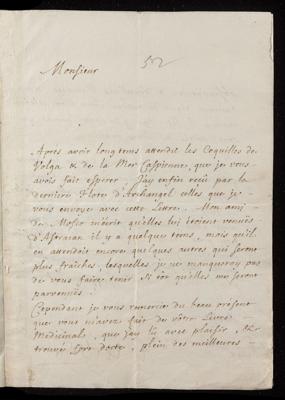 52
Monsieur
Apres avoir longtems attendu les Coquilles de
Volga & de la Mer Caspienne, que je vous
avois fait esperer, j'ay enfin reçu par la
derniere Flote d'Archangel celles que je
vous envoye avec cette lettre. Mon ami
de Mosco m'écrit qu'elles lui étoient venues
d'Astracan il y a quelque tems, mais qu'il
en attendoit encore quelques autres qui seront
plus fraîches, lesquelles je ne manqueray pas
de vous faire tenir si tôt qu'elles me seront
parvenuës.
Cependant je vous remercie du beau présent
que vous m'avez fait de vôtre Livre
Medicinal, que j'ay lû avec plaisir, &
trouvé fort docte, plein des meilleures